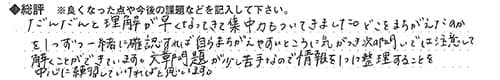 ◆総評 ※良くなった点や今後の課題などを記入して下さい。
だんだんと理解が早くなってきて集中力もついてきました。どこをまちがえたのか
を1つずつ一緒に確認すれば自らまちがえやすいところに気がつき次の問いでは注意して
解くことができています。文章問題が少し苦手なので情報を1つ1つ整理することを
中心に練習していければと思います。